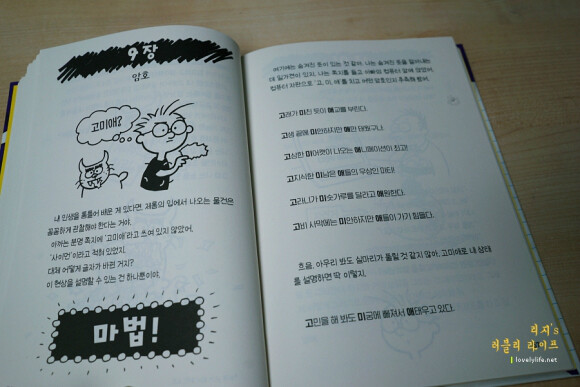 9장
암호
고미애?
내 인생을 통틀어 배운 게 있다면, 제롬의 입에서 나오는 물건은
꼼꼼하게 관찰해야 한다는 거야.
아까는 분명 쪽지에 '고미애'라고 쓰여 있지 않았어,
'사이먼'이라고 적혀 있었지.
대체 어떻게 글자가 바뀐 거지?
이 현상을 설명할 수 있는 건 하나뿐이야.
마법!
여기에는 숨겨진 뜻이 있는 것 같아. 나는 숨겨진 뜻을 알아내는
데 일가견이 있지. 나는 쪽지를 들고 아빠의 컴퓨터 앞에 앉았어.
컴퓨터 자판으로 '고, 미, 애'를 치고 어떤 암호인지 추측해 봤어.
고래가 미친 듯이 애교를 부린다.
고생 끝에 미안하지만 애만 태웠구나.
고상한 미어캣이 나오는 애니메이션이 최고!
고지식한 미남은 애들의 우상인 파티!
고라니가 미숫가루를 달라고 애원한다.
고비 사막에는 미안하지만 애들이 가기 힘들다.
흐음, 아무리 봐도 실마리가 풀릴 것 같지 않아. 고미애로 내 상태
를 설명하면 딱 이렇지.
고민을 해 봐도 미궁에 빠져서 애태우고 있다.
리지's
러블리 라이프
lovelylife.net